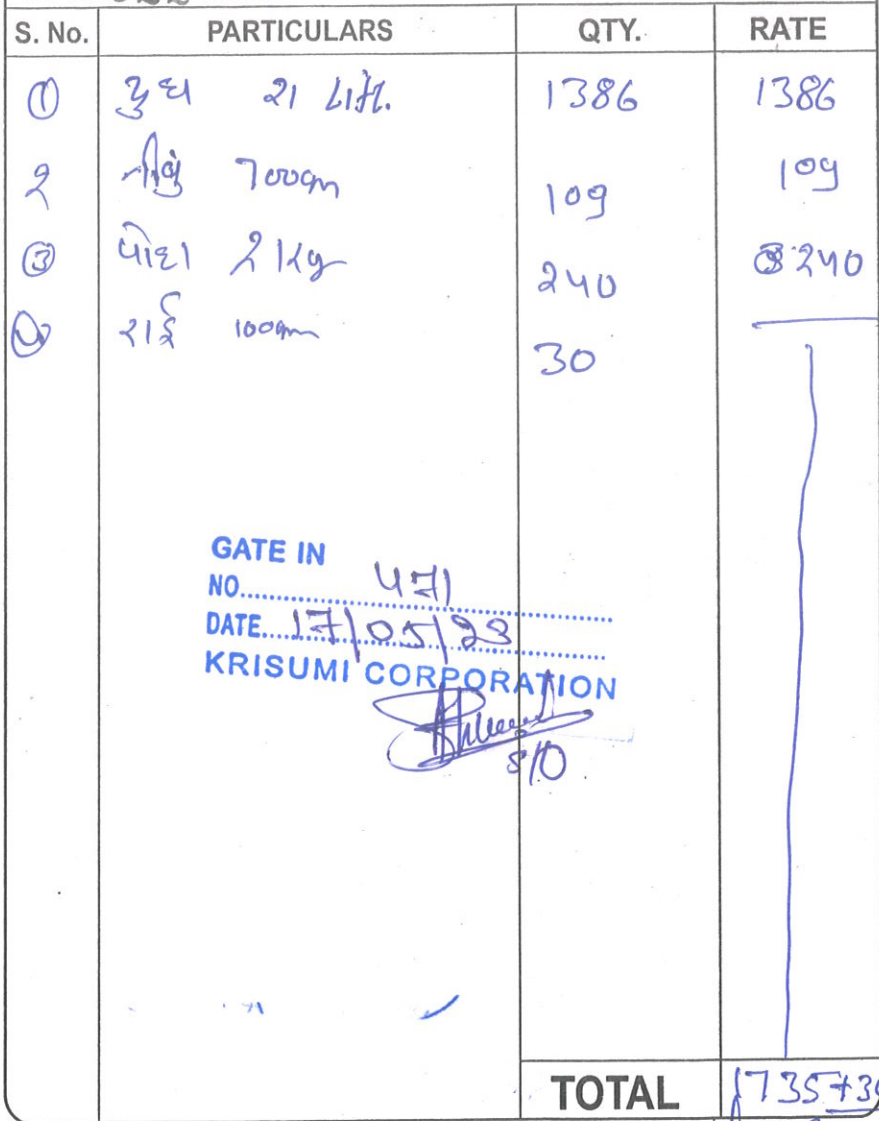 S. No. PARTICULARS QTY. RATE
① દુધ 21 લીટ. 1386 1386
2 લીંબુ 700gm 109 109
③ પૌઆ 2 Kg 240 240
રાઈ 100gm 30
GATE IN
NO. 471
DATE. 17/05/23
KRISUMI CORPORATION
S/O
TOTAL 1735+30